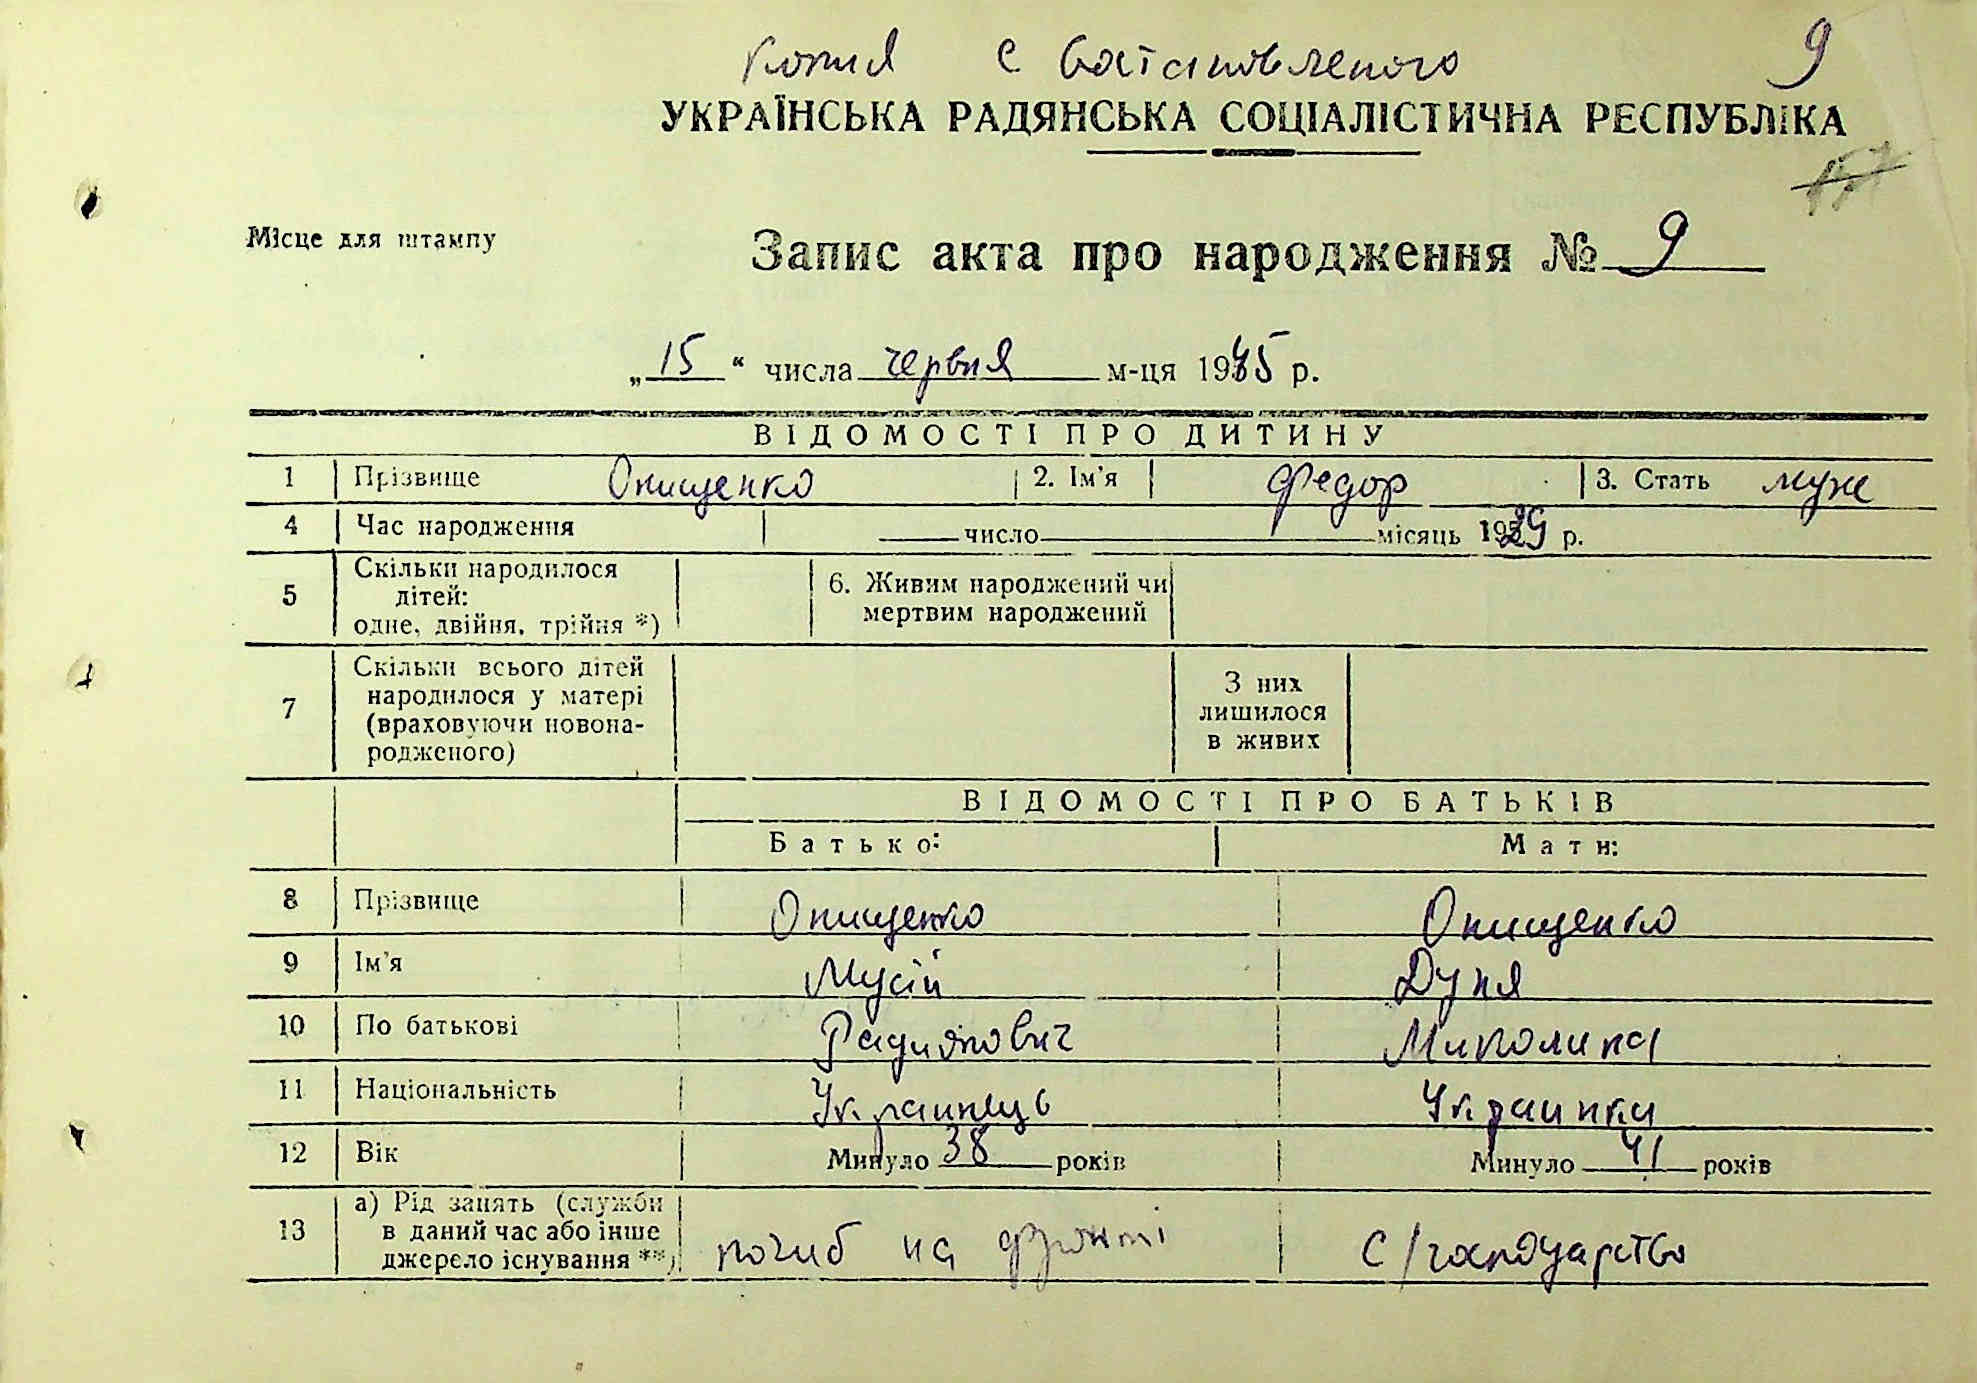 Копия с востановленого 9
УКРАЇНСЬКА РАДЯНСЬКА СОЦІАЛІСТИЧНА РЕСПУБЛІКА
Місце для штампу
Запис акта про народження № 9
„15“ числа червня м-ця 1945 р.
ВІДОМОСТІ ПРО ДИТИНУ
1 Прізвище Онищенко 2. Ім'я Федор 3. Стать муж
4 Час народження число місяць 1929 р.
5 Скільки народилося дітей: одне, двійня, трійня *) 6. Живим народжений чи мертвим народжений
7 Скільки всього дітей народилося у матері (враховуючи новонародженого) З них лишилося в живих
ВІДОМОСТІ ПРО БАТЬКІВ
Батько: Мати:
8 Прізвище Онищенко Онищенко
9 Ім'я Мусій Дуня
10 По батькові Радионович Миколина
11 Національність Украинець Украинка
12 Вік Минуло 38 років Минуло 41 років
13 а) Рід занять (служби в даний час або інше джерело існування **) погиб на фронті с/господарство